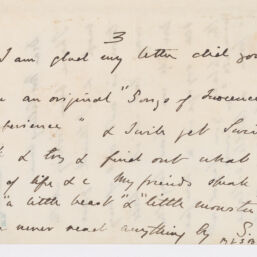 3
I am glad my letter did you
an original "Songs of Innocence
perience" & I will get Swin
& try & find out what
of life &c My friends speak
"a little beast" & "little monste
never read anything by S.